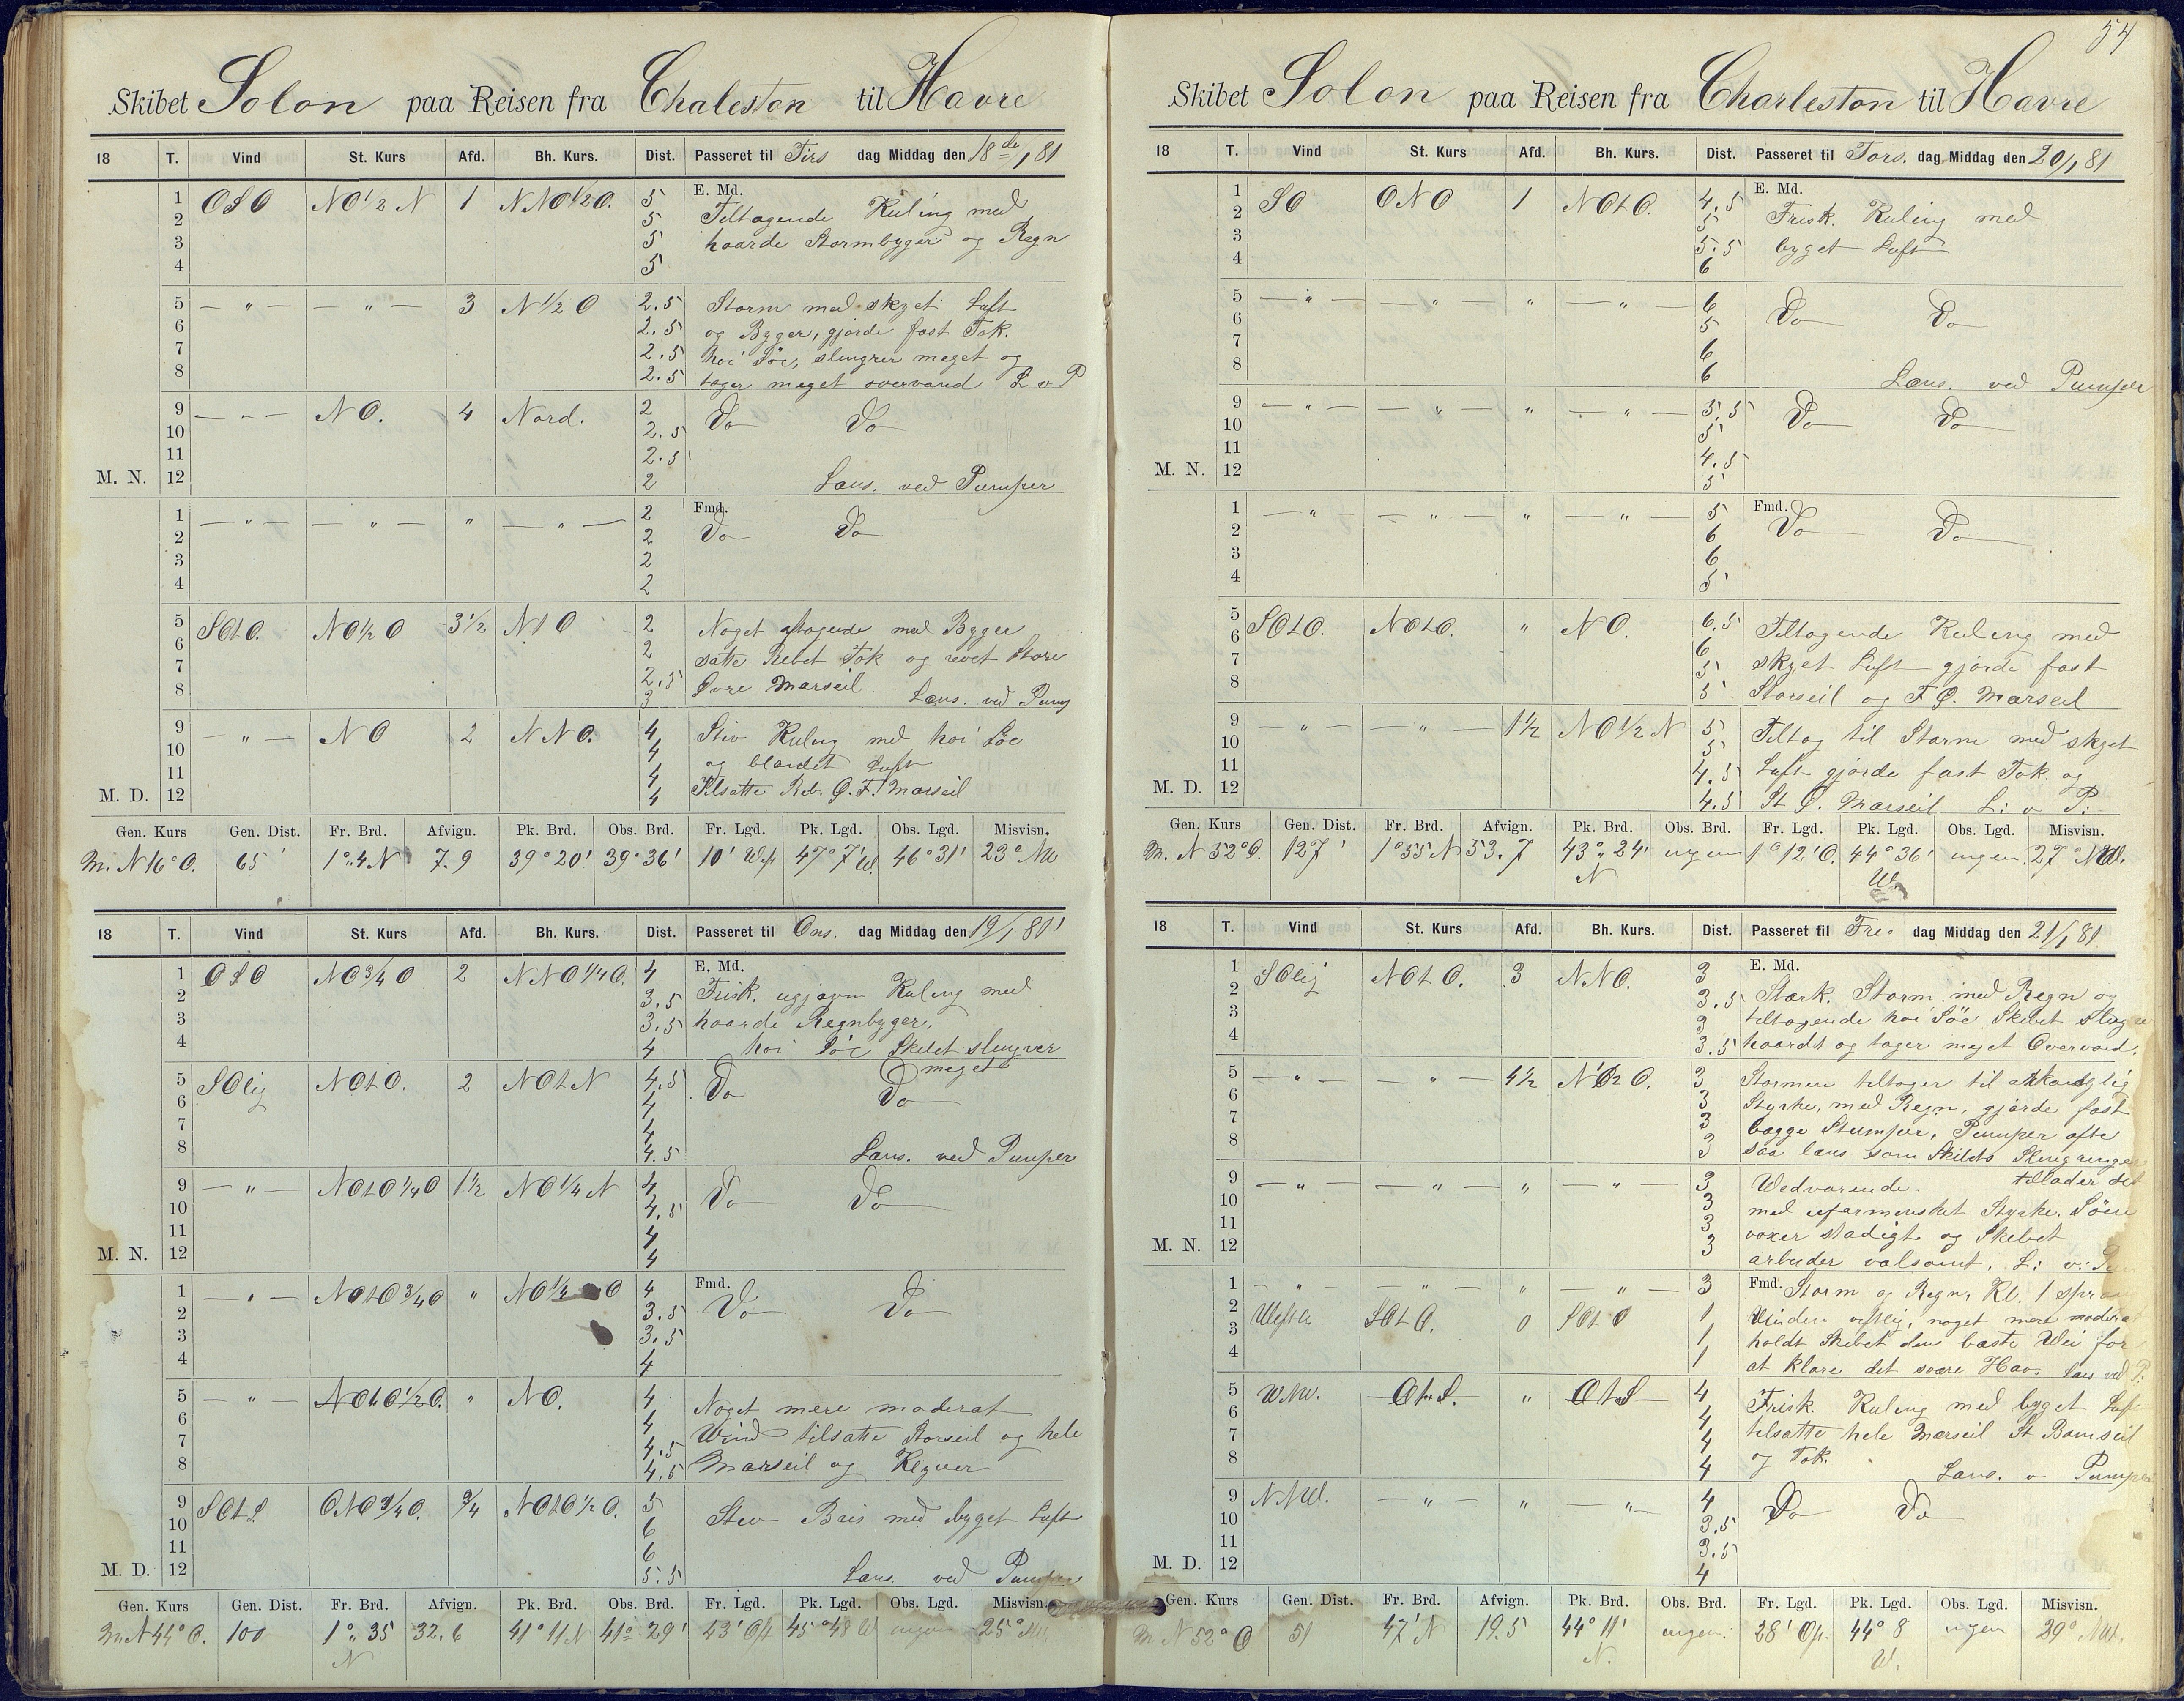 Skibet Solon paa Reisen fra Chaleston til Havre
18 T. Vind St. Kurs Afd. Bh. Kurs. Dist. Passeret til Tirs dag Middag den 18de/1 81
E. Md.
1 OSO NO 1/2 N 1 NNO 1/2 O. 5
2 5 Tiltagende Kuling med
3 5 haarde Stormbyger og Regn
4 5
5 — " — — " — 3 N 1/2 O 2.5 Storm med skyet Luft
6 2.5 og Byger, gjorde fast Fok.
7 2.5 hoi Söe, slingrer meget og
8 2.5 tager meget overvand L v P
9 — " — NO. 4 Nord. 2 Do Do
10 2.5
11 2.5
M. N. 12 2 Læns. ved Pumper
Fmd.
1 — " — — " — " — " — 2 Do Do
2 2
3 2
4 2
5 SOtO. NO 1/2 O 3 1/2 NtO 2 Noget aftagende med Byger
6 2 satte Rebet Fok og revet Store
7 2.5 Øvre Marseil
8 3 Læns. ved Pump
9 — " — NO 2 NNO. 4 Stiv Kuling med hoi Söe
10 4 og blandet Luft
11 4 Tilsatte Reb. Ø. F. Marseil
M. D. 12 4
Gen. Kurs Gen. Dist. Fr. Brd. Afvign. Pk. Brd. Obs. Brd. Fr. Lgd. Pk. Lgd. Obs. Lgd. Misvisn.
M. N 16° O. 65' 1°.4 N 7.9 39° 20' 39° 36' 10' W 47° 7' W. 46° 31' 23° NW
18 T. Vind St. Kurs Afd. Bh. Kurs. Dist. Passeret til Ons. dag Middag den 19/1 81
E. Md.
1 OSO NO 3/4 O 2 NNO 1/4 O. 4
2 3.5 Frisk. ugjævn Kuling med
3 3.5 haarde Regnbyger,
4 4 hoi Söe Skibet slingrer
meget
5 SOlig NOtO. 2 NOtN 4.5 Do Do
6 4
7 4
8 4.5 Læns. ved Pumper
9 — " — NOtO 1/4 O 1 1/2 NO 1/4 N 4 Do Do
10 4.5
11 4
M. N. 12 4
Fmd.
1 — " — NOtO 3/4 O " NO 1/4 O 4 Do Do
2 3.5
3 3.5
4 4
5 — " — NOtO 1/2 O. " NO. 4 Noget mere moderat
6 4 Wind tilsatte Storseil og hele
7 4.5 Marseil og Klyver
8 4.5
9 SOtS. ONO 3/4 O. 3/4 NOtO 1/2 O. 5 Stiv Bris med byget Luft
10 6
11 6
M. D. 12 5.5 Læns. ved Pumper
Gen. Kurs Gen. Dist. Fr. Brd. Afvign. Pk. Brd. Obs. Brd. Fr. Lgd. Pk. Lgd. Obs. Lgd. Misvisn.
M. N 44° O. 100 1° 35 N 32.6 41° 11 N 41° 29' 43' Ost 45° 48 W ingen 25° NW.
54
Skibet Solon paa Reisen fra Charleston til Havre
18 T. Vind St. Kurs Afd. Bh. Kurs. Dist. Passeret til Tors. dag Middag den 20/1 81
E. Md.
1 SO ONO 1 NOtO. 4.5
2 5 Frisk. Kuling med
3 5.5 byget Luft
4 6
5 — " — — " — " — " — 6 Do Do
6 5
7 6
8 6 Læns. ved Pumper
9 — " — — " — " — " — 5.5 Do Do
10 5
11 4.5
M. N. 12 5
Fmd.
1 — " — — " — " — " — 5 Do Do
2 6
3 6
4 5
5 SOtO. NOtO. " NO. 6.5 Tiltagende Kuling med
6 6 skyet Luft gjorde fast
7 5 Storseil og F. Ø. Marseil
8 5
9 — " — — " — 1 1/2 NO 1/2 N 5 Tiltog til Storm med skyet
10 5 Luft gjorde fast Fok. og
11 4.5 St Ø. Marseil L: v P:
M. D. 12 4.5
Gen. Kurs Gen. Dist. Fr. Brd. Afvign. Pk. Brd. Obs. Brd. Fr. Lgd. Pk. Lgd. Obs. Lgd. Misvisn.
M. N 52° O. 127' 1° 55 N 53.7 43° 24' N ingen 1° 12' O. 44° 36' W. ingen. 27° NW.
18 T. Vind St. Kurs Afd. Bh. Kurs. Dist. Passeret til Fre. dag Middag den 21/1 81
E. Md.
1 SOlig NOtO. 3 NNO. 3
2 3.5 Stærk. Storm med Regn og
3 3 tiltagende hoi Söe Skibet slingrer
4 3.5 haardt og tager meget Overvand.
5 — " — — " — 4 1/2 N 1/2 O. 3 Stormen tiltager til orkanlig
6 3 Styrke, med Regn, gjorde fast
7 3 begge Stumper, Pumper ofte
8 3 saa læns som Skibets Slingringer
tillader det
9 — " — — " — " — " — 3 Wedvarende.
10 3 med uformindsket Styrke. Söen
11 3 voxer stadigt og Skibet
M. N. 12 3 arbeider volsomt. L: v: Pum
1 — " — " — " — " — 3 Fmd. Storm og Regn, Kl. 1 sprang
2 Westlig SOtO. 0 SOtO 1 Vinden vestlig, noget mere moderat
3 1 holdt Skibet den bæste Wei for
4 1 at klare det svære Hav. Læns ved P.
5 WNW. OtS. " OtS 4 Frisk Kuling med byget Luft
6 4 tilsatte hele Marseil St Bomseil
7 4 og Fok.
8 4 Læns. v Pumper
9 NNW. — " — " — " — 4 Do Do
10 3.5
11 3.5
M. D. 12 4
Gen. Kurs Gen. Dist. Fr. Brd. Afvign. Pk. Brd. Obs. Brd. Fr. Lgd. Pk. Lgd. Obs. Lgd. Misvisn.
M. N 52° O 51 47' N 19.5 44° 11' N. ingen. 28' Ost 44° 8 W. ingen 29° NW.